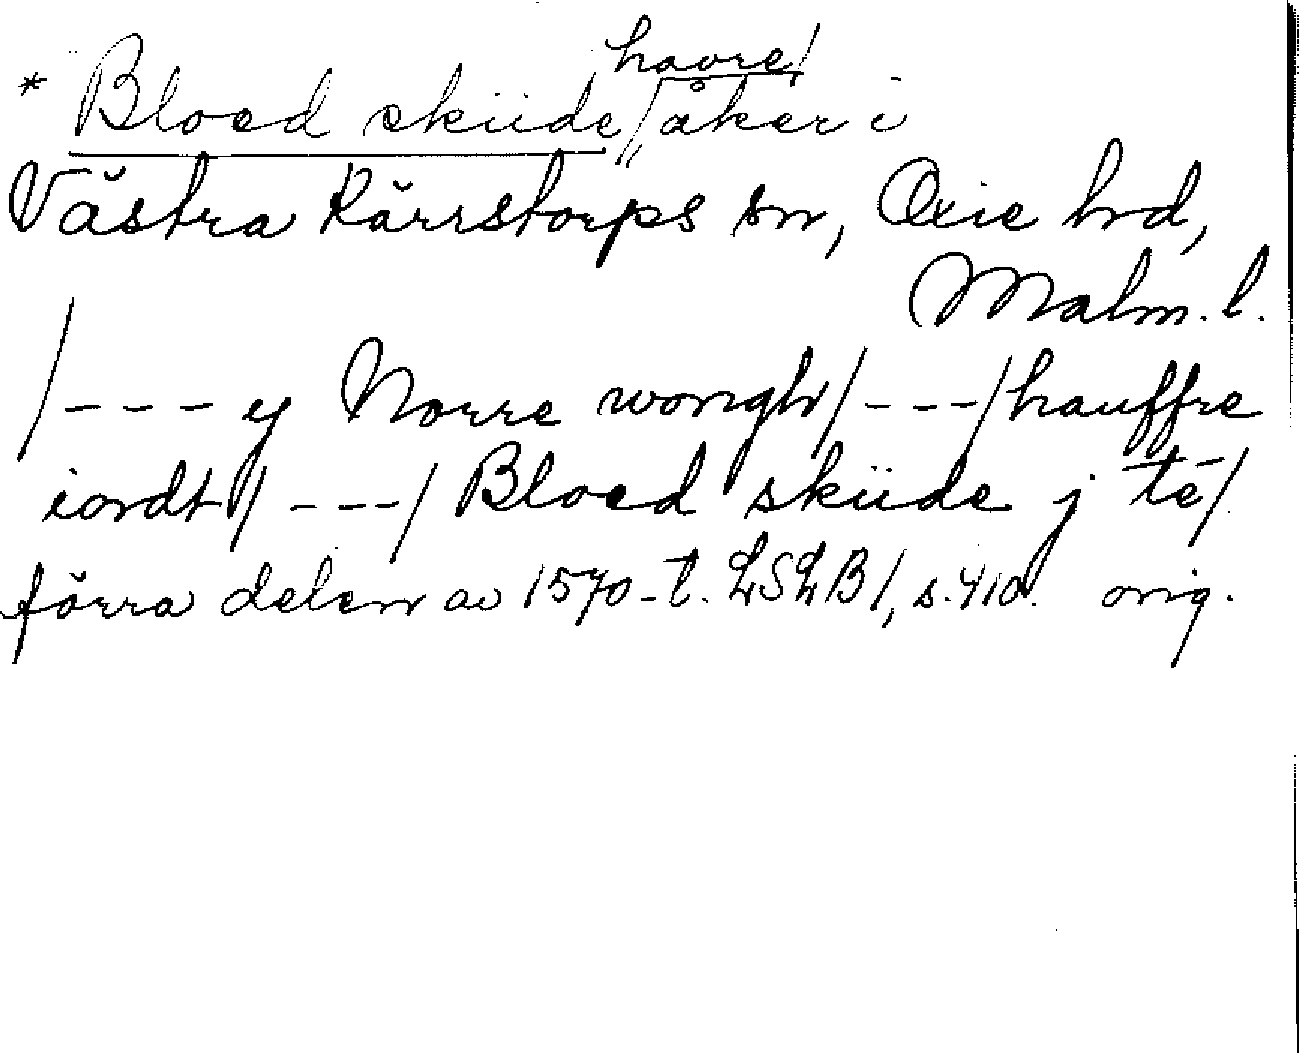 * Bloed skiide, /havre/åker i
Västra Kärrstorps sn, Oxie hrd,
Malm. l.
/--- y Norre wongh/---/hauffre
iordt/---/Bloed skiide j te/
förra delen av 1570-t. LSLB1, s.41d. orig.